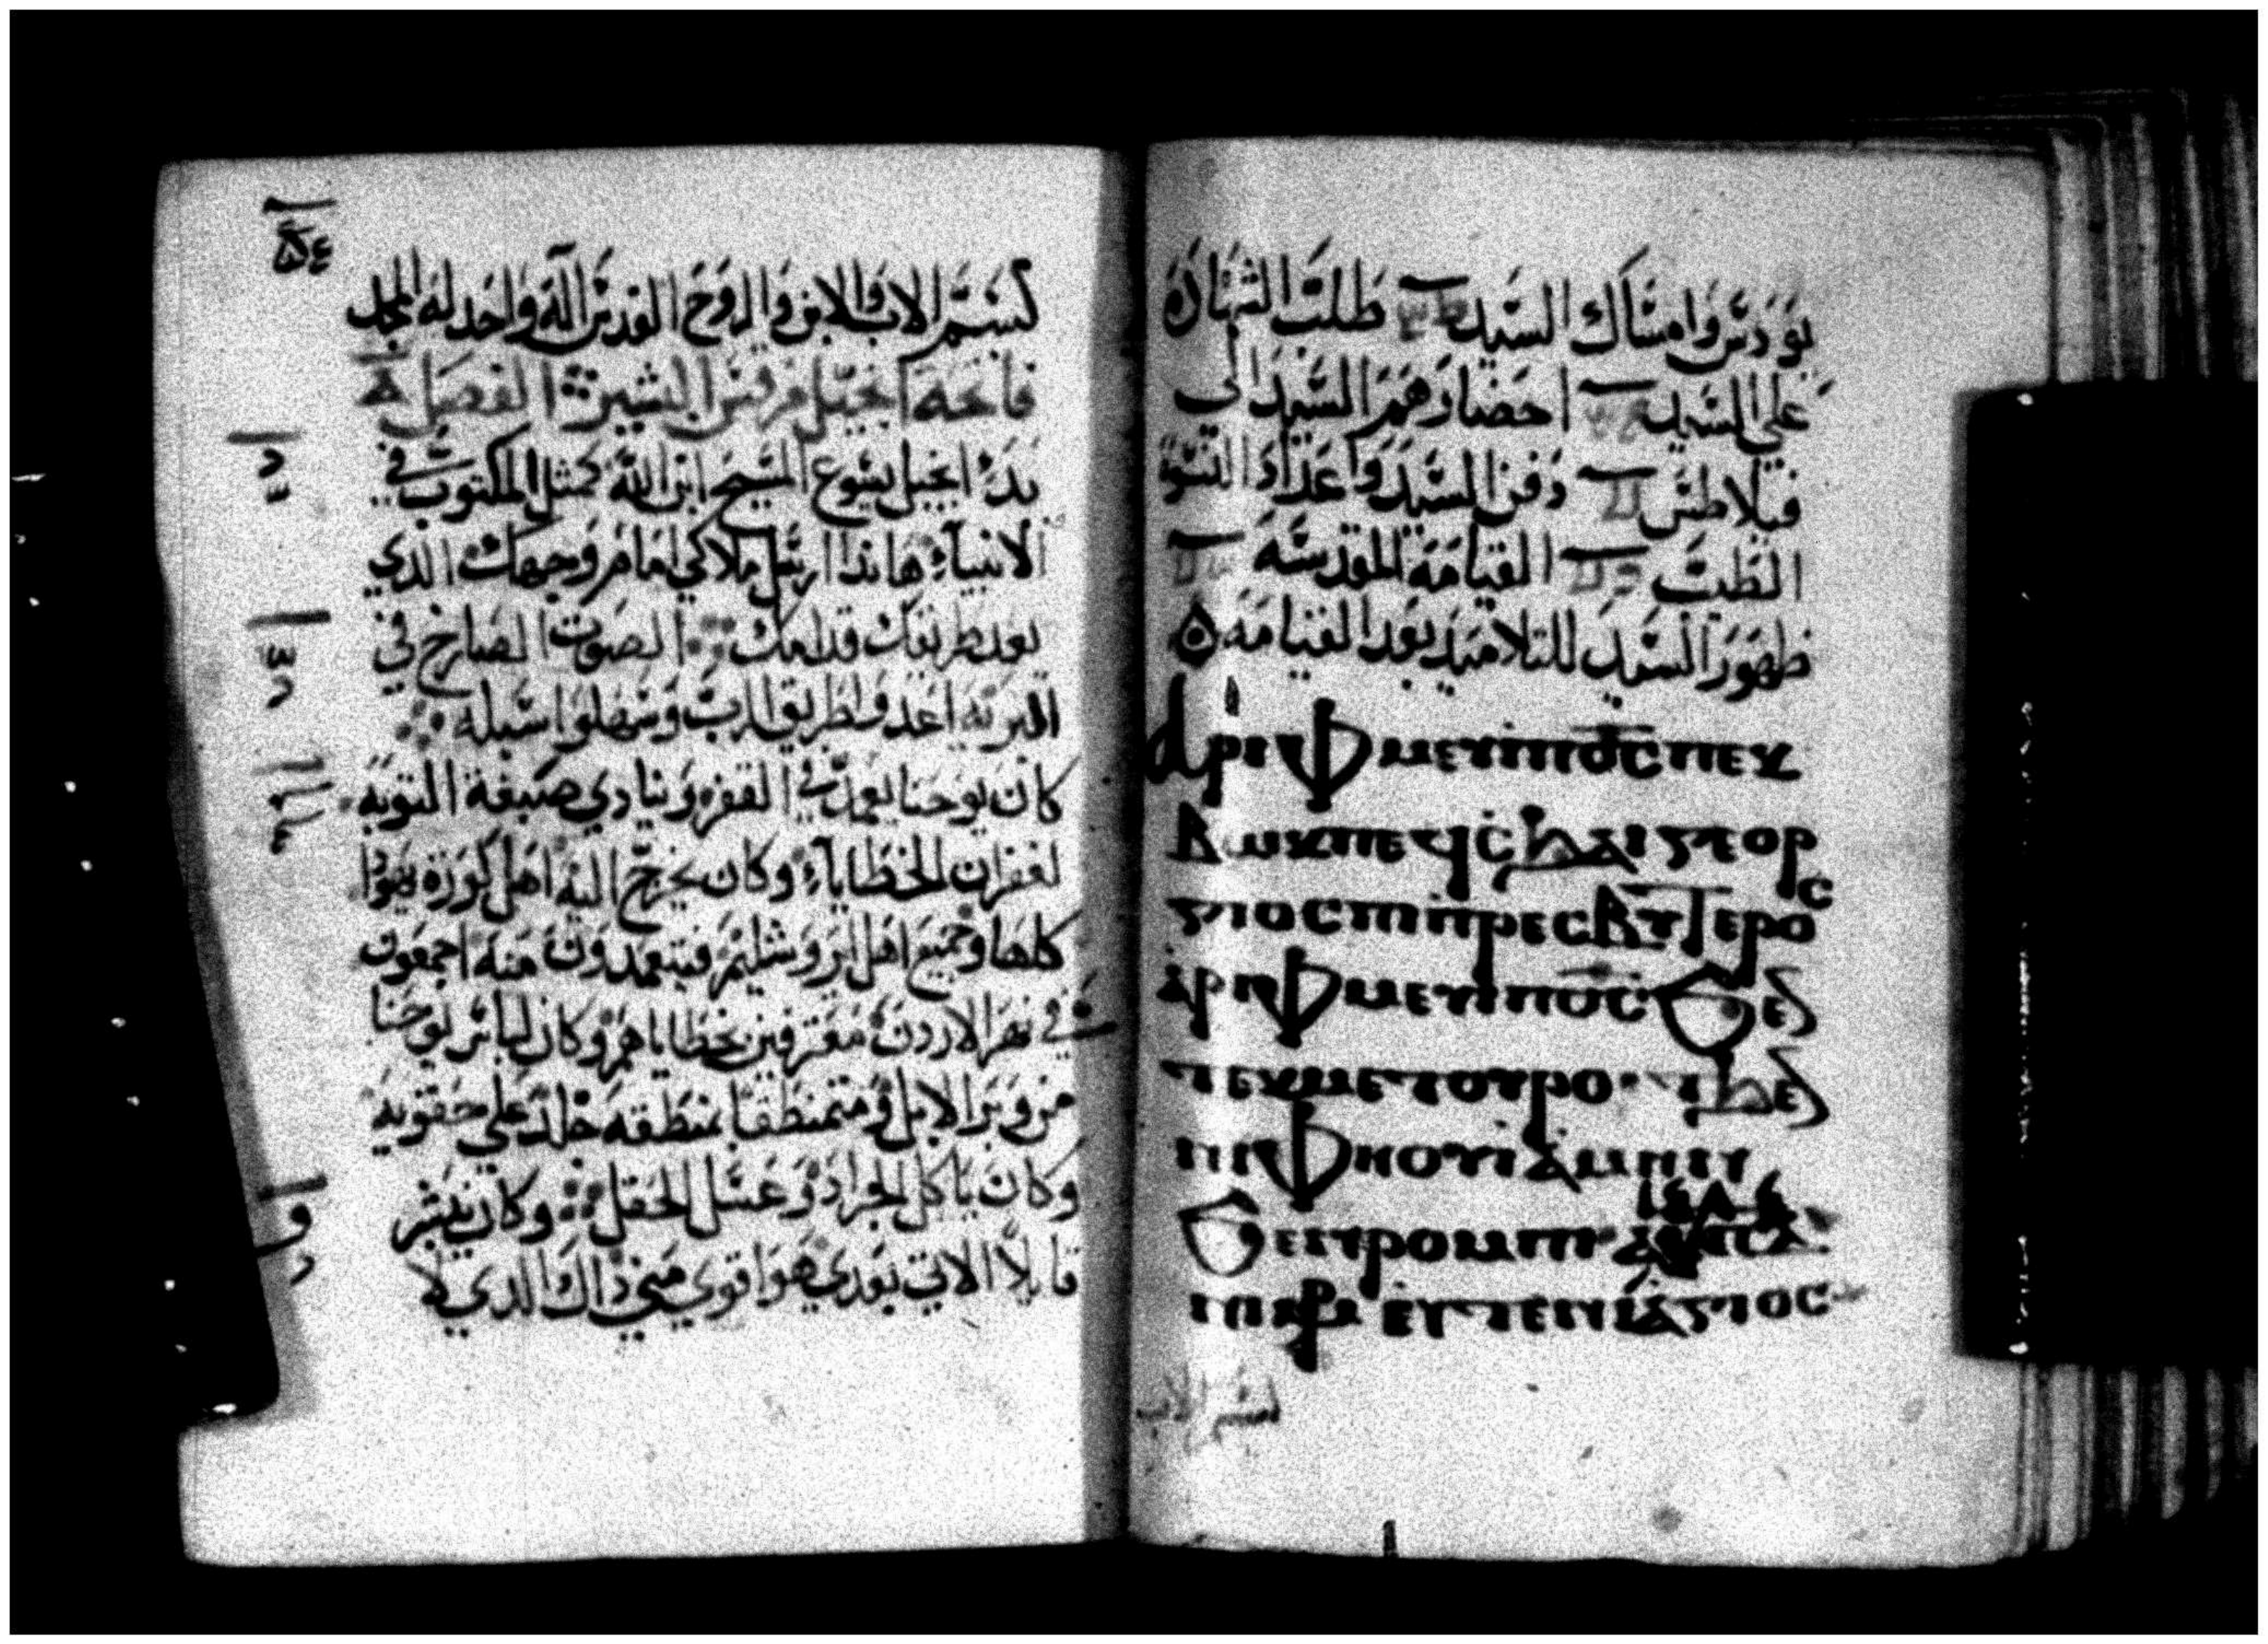 بودس وامساك السيد طلبت الشهاده
علي السيد احضارهم السيد الي
فيلاطس دفن السيد واعداد النسوة
الطيب القيامه المقدسه
ظهور السيد للتلاميد بعد القيامه
ⲁⲣⲓⲫⲙⲉⲩⲓⲡⲟ̅ⲥ̅ⲡⲉⲕ
ⲃⲱⲕⲡⲉϥⲥϧⲁⲓⲅⲉⲟⲣ
ⲅⲓⲟⲥⲡⲓⲡⲣⲉⲥⲃⲩⲧⲉⲣⲟⲥ
ⲁⲣⲓⲫⲙⲉⲩⲓⲡⲟ̅ⲥ̅ϧⲉⲛ
ⲧⲉⲕⲙⲉⲧⲟⲩⲣⲟ
ⲛⲓⲫⲏⲟⲩⲓ
ϧⲉⲛϯⲣⲟⲙⲡⲓ
ⲉⲩⲧⲉⲛⲓⲁⲅⲓⲟⲥ
بسم الاب
بسم الاب والابن والروح القدس اله واحد له المجد
فاتحة انجيل مرقس البشير الفصل
بدء انجيل يسوع المسيح ابن الله كمثل المكتوب في
الانبياء هاندا ارسل ملاكي امام وجهك الدي
يعد طريقك قدامك الصوت الصارخ في
البريه اعدوا طريق الرب وسهلوا سبله
كان يوحنا يعمد في القفر وينادي صبغة التوبه
لغفران الخطايا وكان يخرج اليه اهل كورة يهودا
كلها وجميع اهل يروشليم فيتعمدون منه اجمعون
في نهر الاردن معترفين بخطاياهم وكان لباس يوحنا
من وبر الابل ومتمنطقا بمنطقه جلد علي حقويه
وكان ياكل الجراد وعسل الحقل وكان يبشر
قايلا الاتي بعدي هو اقوي مني داك الدي لا